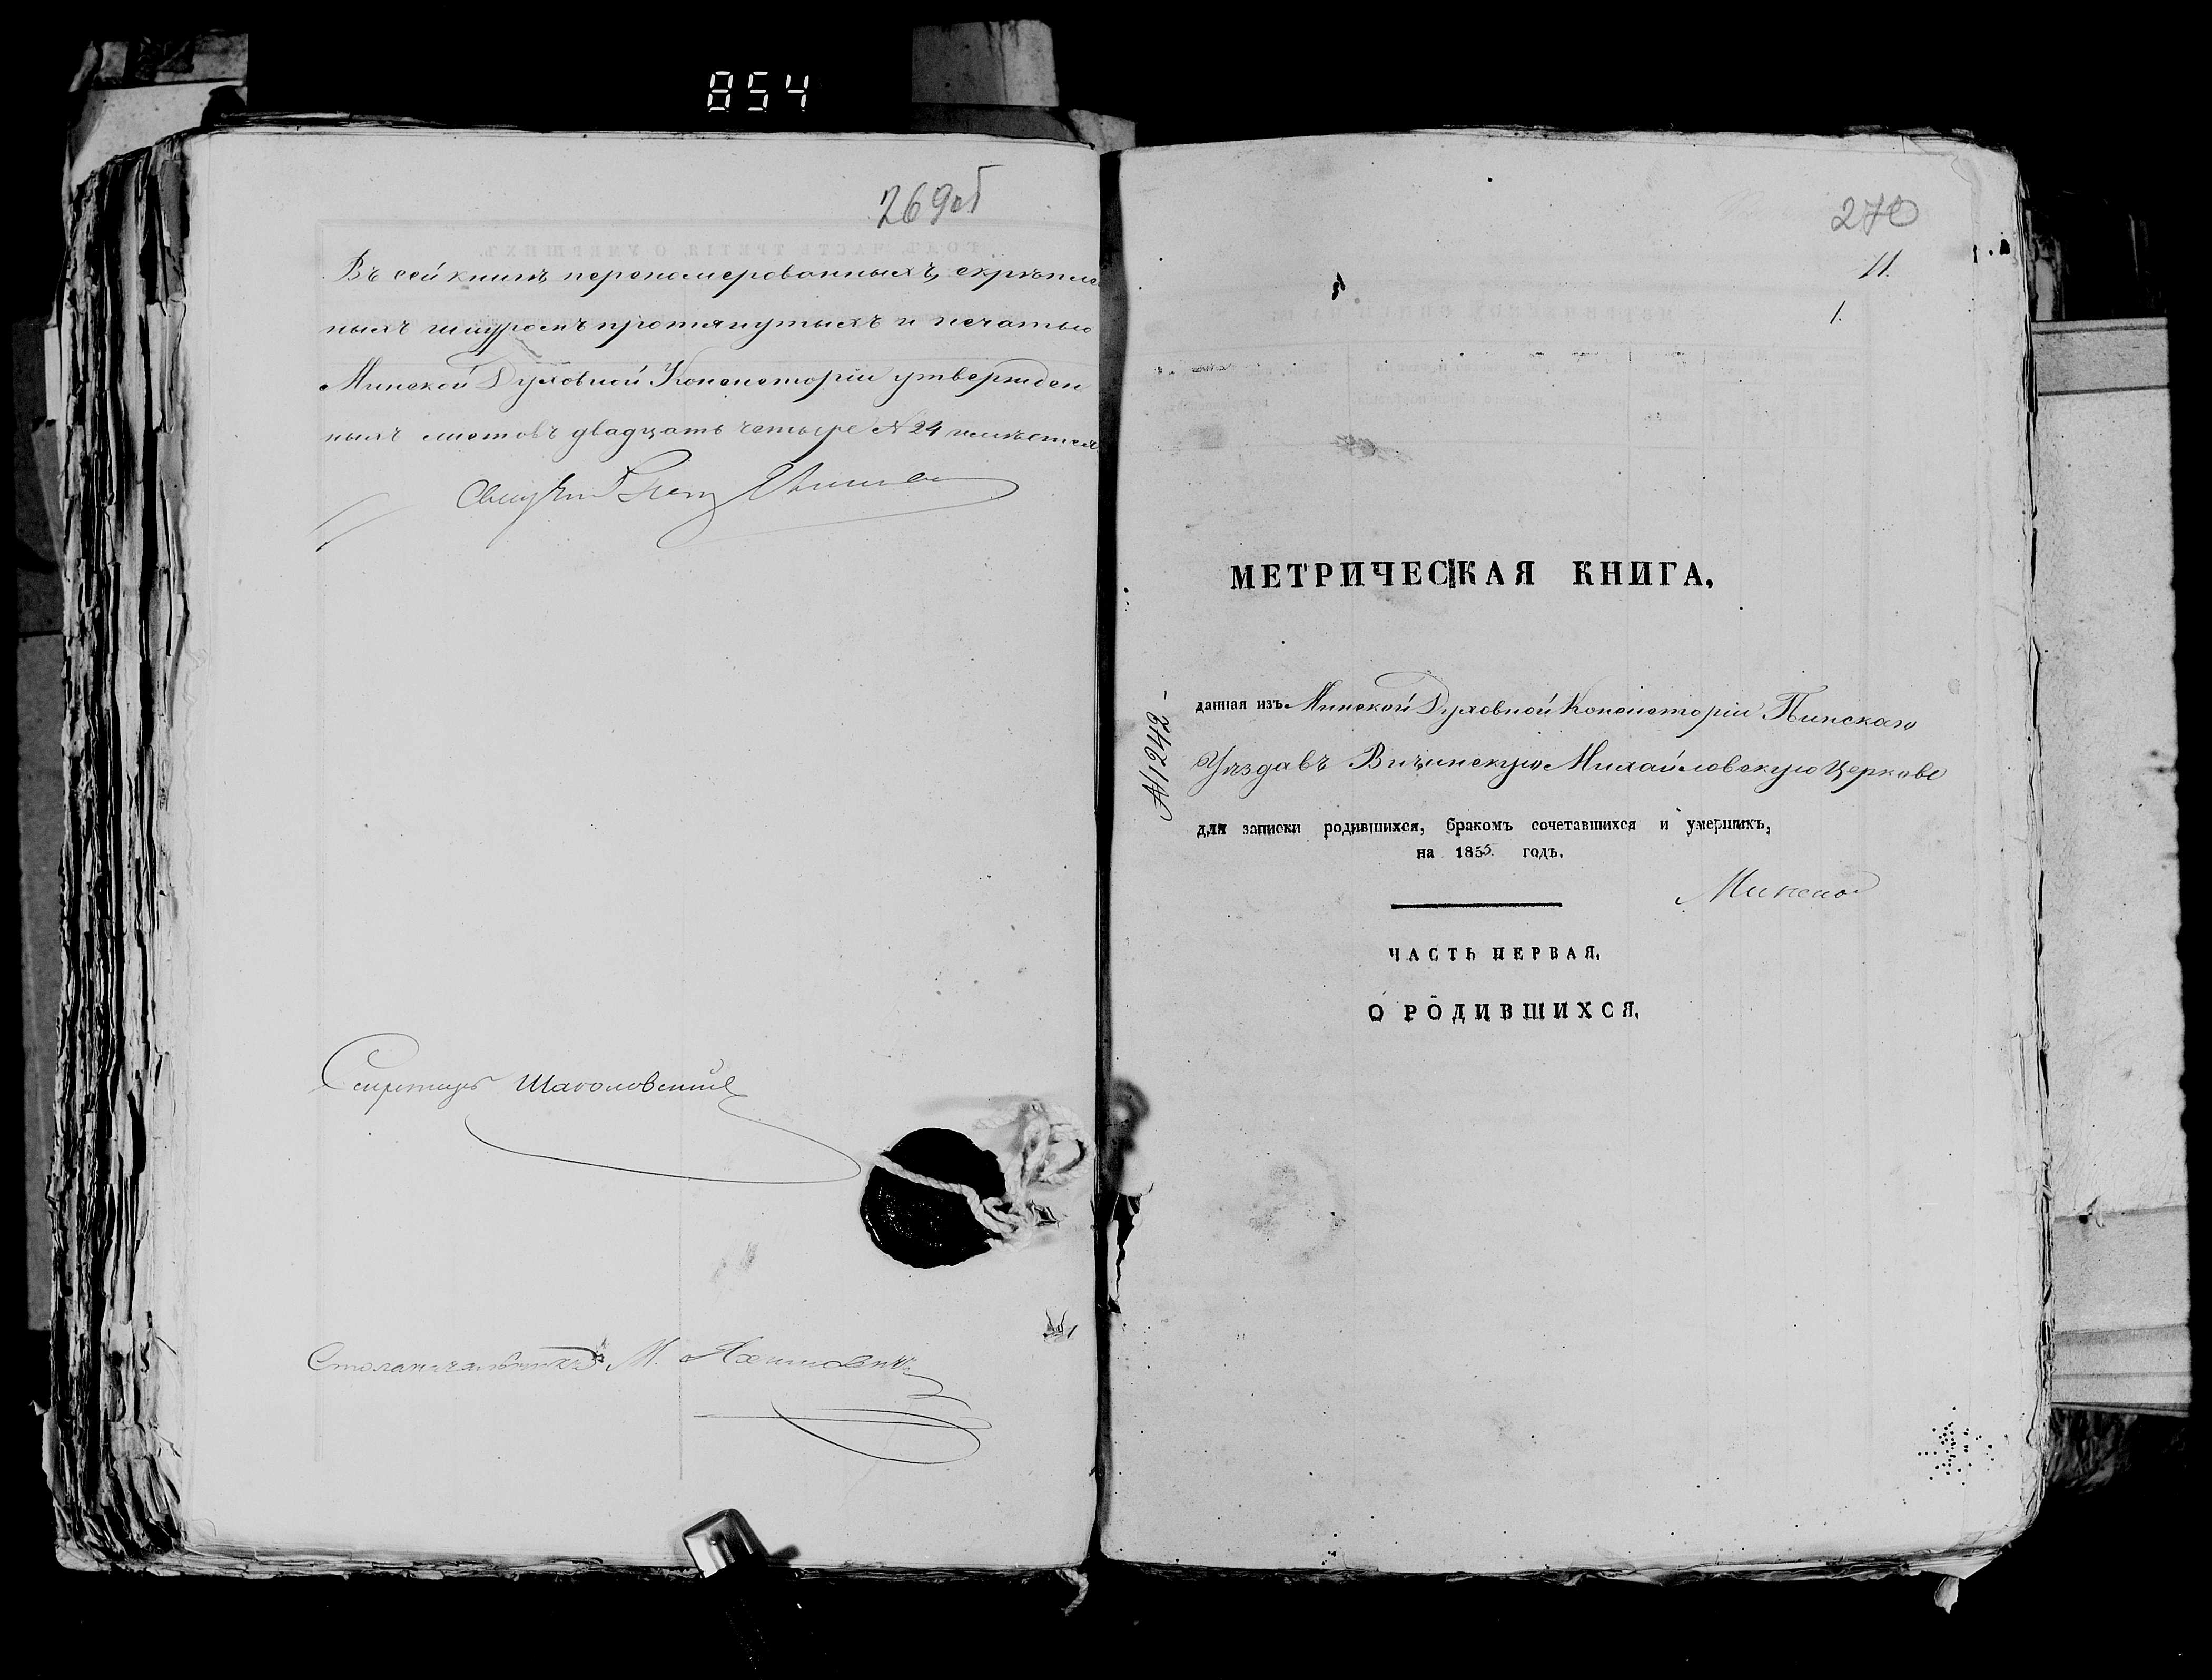 854
269об
Въ сей книгѣ перепомерованныхъ, скрѣпле
ныхъ шнуромъ протянутыхъ и печатью
Минской Духовной Консисторіи утвержден
ныхъ листовъ двадцать четыре № 24 имѣется
Секретарь
Столоначальникъ М.
270
11.
1.
МЕТРИЧЕСКАЯ КНИГА,
№ 1242
данная изъ Минской Духовной Консисторіи Пинскаго
Уѣзда въ Вичинскую Михайловскую Церковь
для записки родившихся, бракомъ сочетавшихся и умершихъ,
на 1855 годъ.
ЧАСТЬ ПЕРВАЯ,
О РОДИВШИХСЯ,